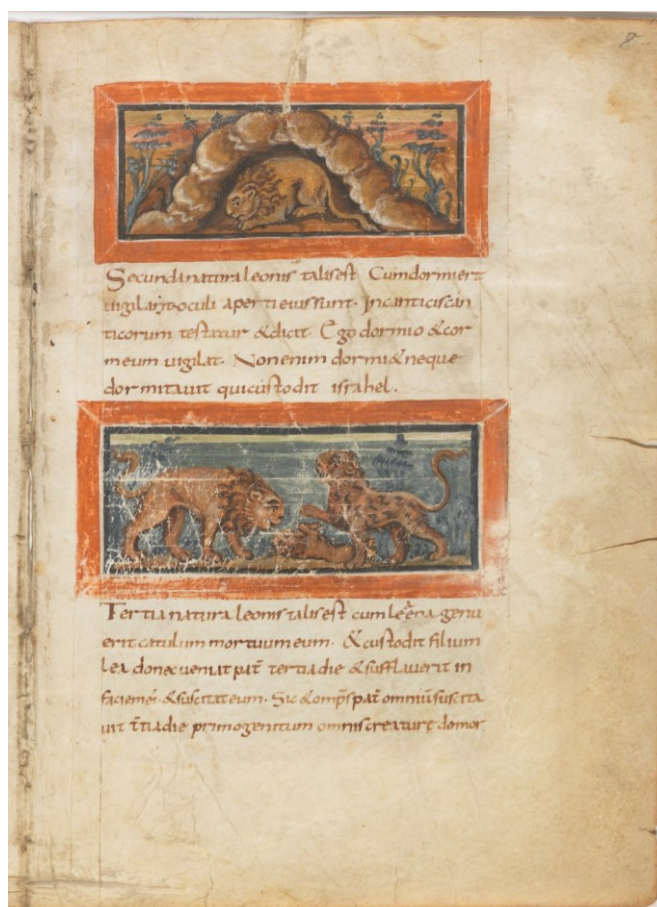 8
Secunda natura leonis talis est Cum dormierit
vigilant oculi aperti eius sunt. In canticis can
ticorum testatur & dicit. Ego dormio & cor
meum vigilat. Non enim dormi& neque
dormitavit qui custodit israhel.
Tertia natura leonis talis est cum leena genu
erit catulum mortuum eum. & custodit filium
lea donec veniat pat̄ tertia die & sufflaverit in
faciem & suscitat eum. Sic & omp̄s pat̄ omniū suscita
vit t̄tia die primogenitum omnis creature domor